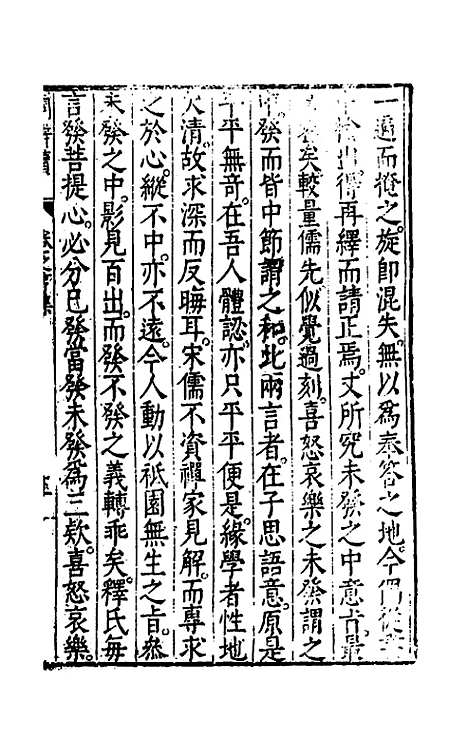 一過而掩之旋卽混失無以爲奉答之地今們從
出得再繹而請正焉丈所究未發之中意古最
矣較量儒先似覺過刻喜怒哀樂之未發謂之
中發而皆中節謂之和此兩言者在子思語意原是
平平無竒在吾人體認亦只平平便是緣學者性地
清故求深而反晦耳宋儒不資禪家見解而專求
之於心縱不中亦不遠今人動以祇園無生之旨叅
未發之中影見百出而發不發之義轉乖矣釋氏每
言發菩提心必分已發當發未發爲三欵喜怒哀樂